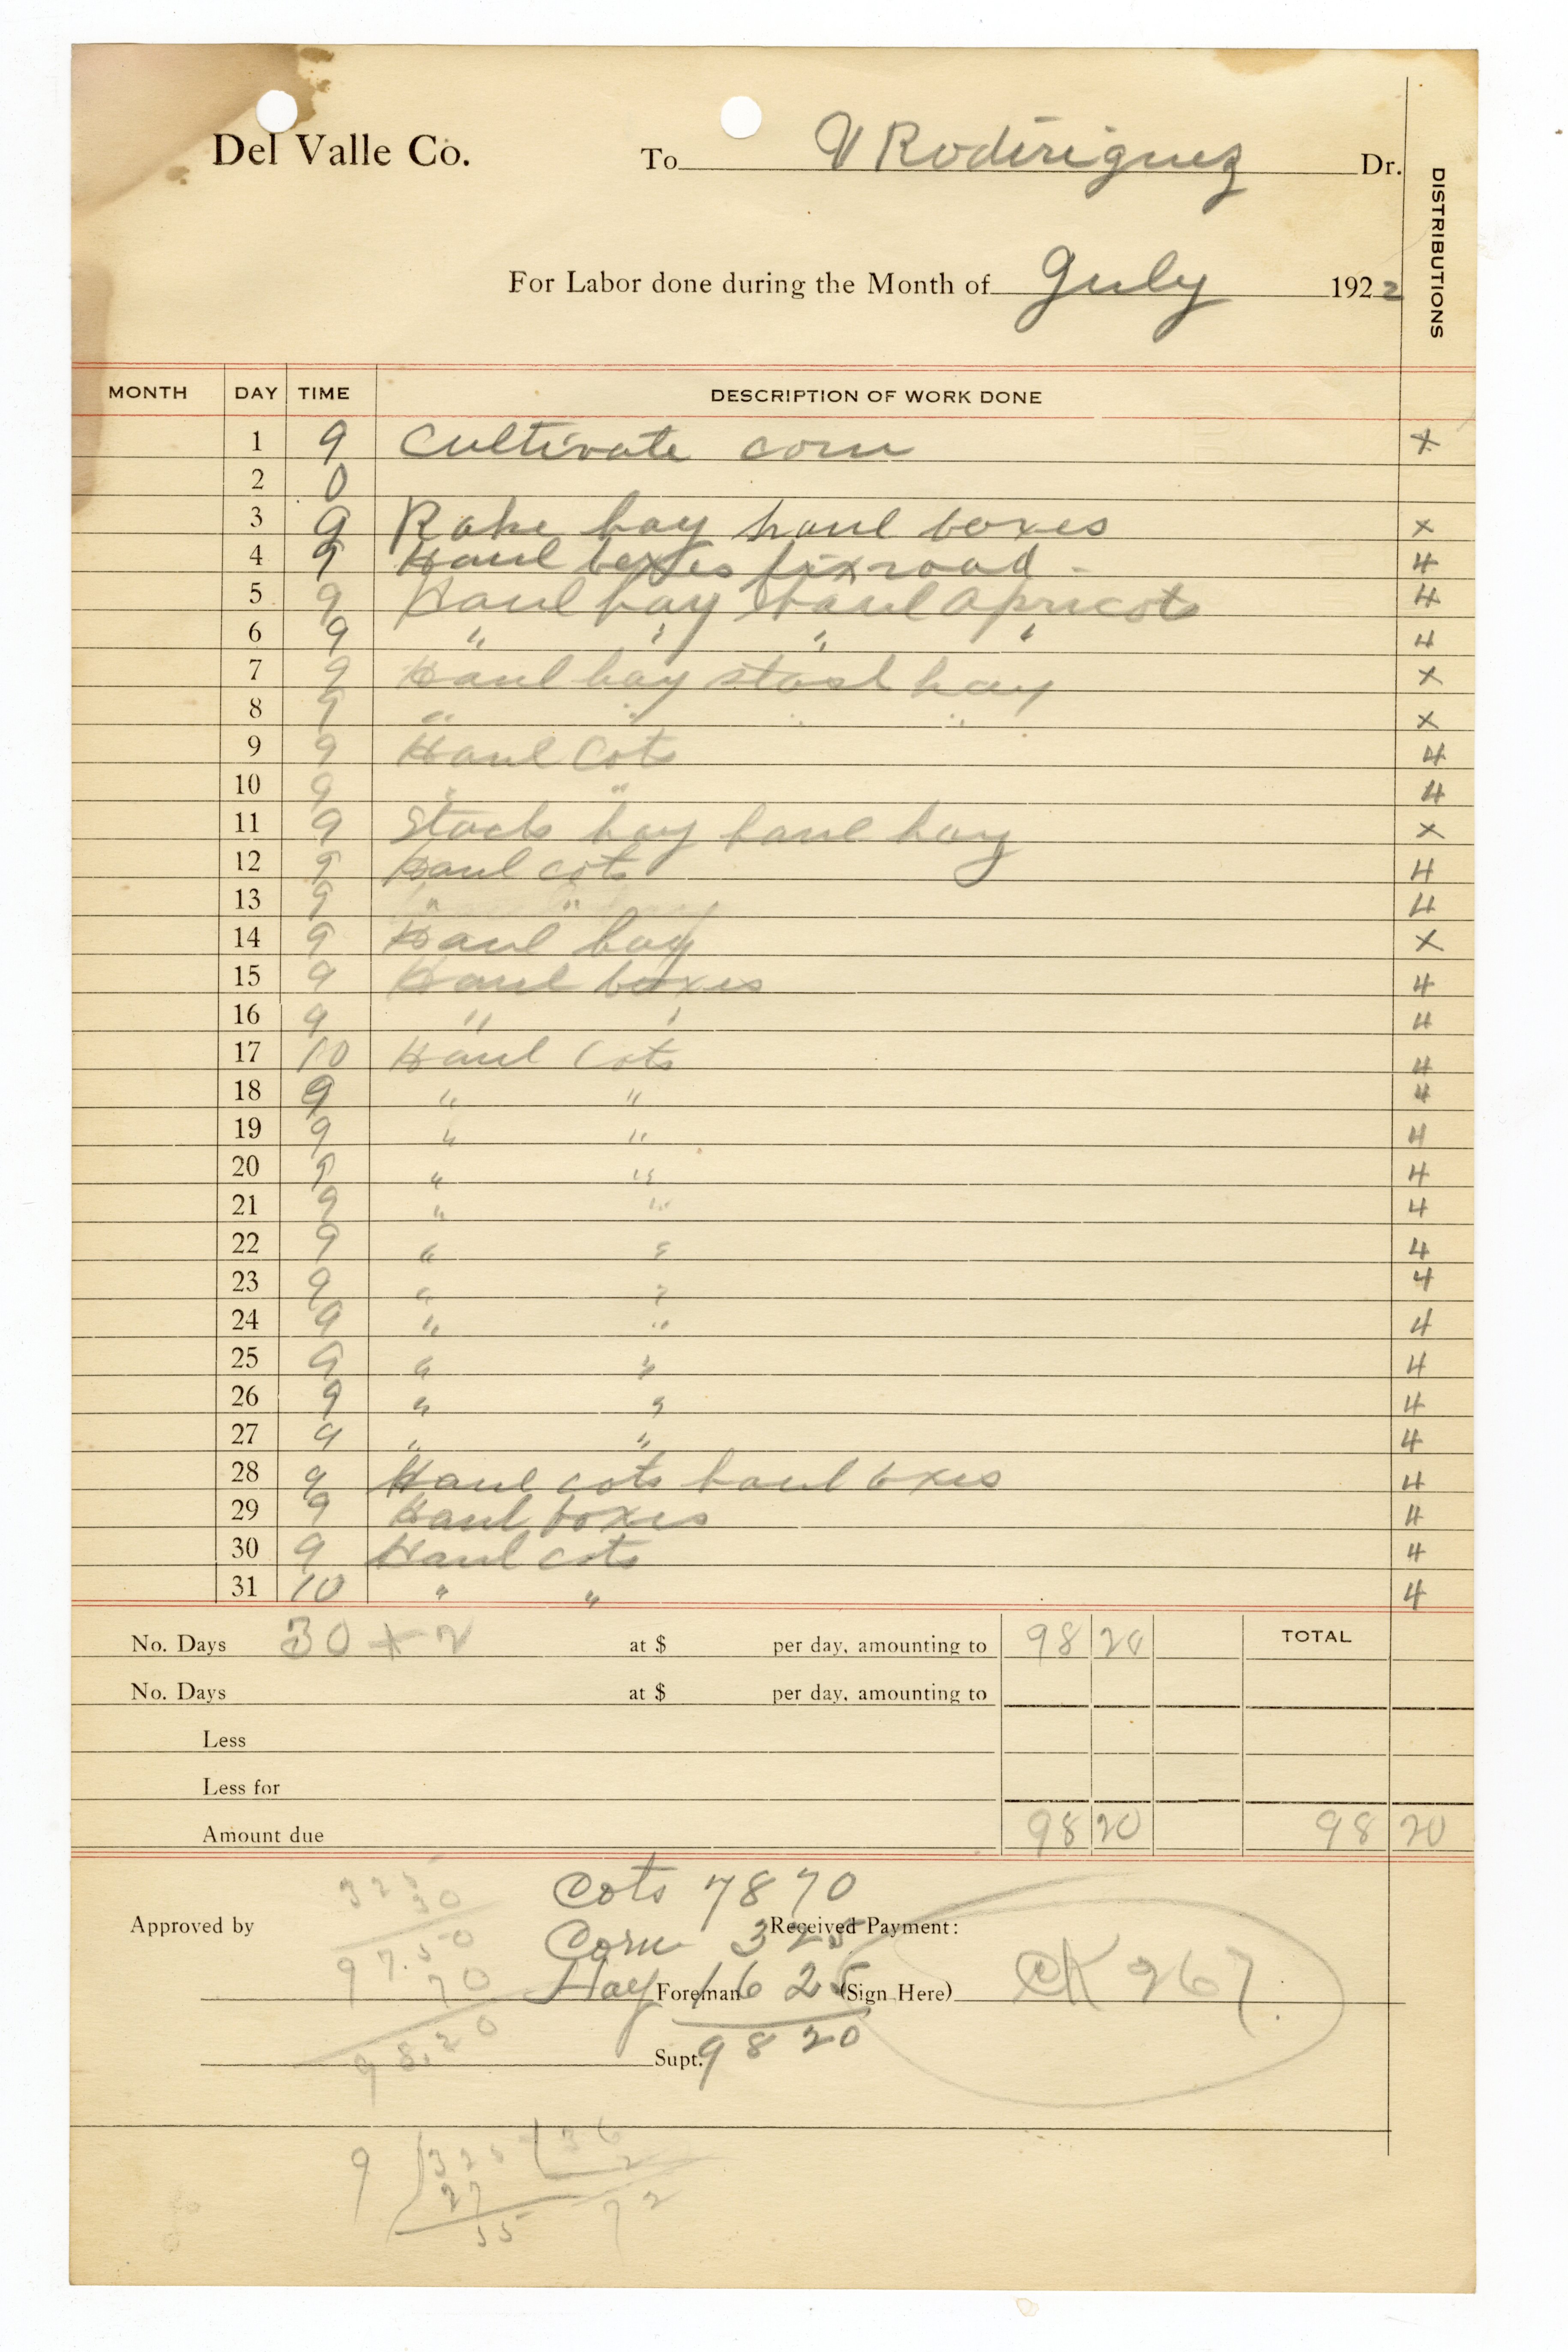 Del Valle Co. To V Roderiguez Dr.
DISTRIBUTIONS
For Labor done during the Month of July 1922
MONTH DAY TIME DESCRIPTION OF WORK DONE
1 9 Cultivate corn x
2 0
3 9 Rake hay haul boxes x
4 9 Haul boxes fix road - 4
5 9 Haul hay haul apricots 4
6 9 " " " " 4
7 9 Haul hay stack hay x
8 9 " " " " x
9 9 Haul Cots 4
10 9 " " 4
11 9 Stack hay haul hay x
12 9 Haul cots 4
13 9 " " 4
14 9 Haul hay x
15 9 Haul boxes 4
16 9 " " 4
17 10 Haul Cots 4
18 9 " " 4
19 9 " " 4
20 9 " " 4
21 9 " " 4
22 9 " " 4
23 9 " " 4
24 9 " " 4
25 9 " " 4
26 9 " " 4
27 9 " " 4
28 9 Haul cots haul bxes 4
29 9 Haul boxes 4
30 9 Haul cots 4
31 10 " " 4
No. Days 30 + 2 at $ per day, amounting to 98 20 TOTAL
No. Days at $ per day, amounting to
Less
Less for
Amount due 98 20 98 20
325 Cots 78 70
30
Approved by Corn 3 25 Received Payment:
97.50
70 Hay 16 25 Foreman (Sign Here) CK 267
98.20 Supt. 98 20
9 325 36
27 2
55 72